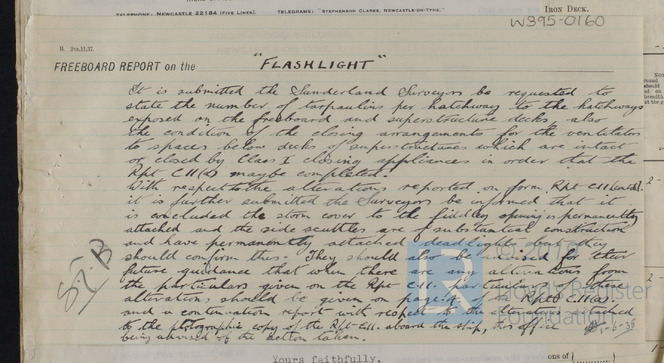 TELEPHONE: NEWCASTLE 22184 (FIVE LINES). TELEGRAMS: "STEPHENSON CLARKE, NEWCASTLE-ON-TYNE."
IRON DECK.
W395-0160
FREEBOARD REPORT on the "FLASHLIGHT"
It is submitted the Sunderland Surveyors be requested to
state the number of tarpaulins per hatchway to the hatchways
exposed on the freeboard and superstructure decks, also
the condition of the closing arrangements for the ventilators
to spaces below decks of superstructures which are intact
or closed by Class I closing appliances in order that the
Rpt C11(a) may be completed.
With respect to the alterations reported on form Rpt C11
it is further submitted the Surveyors be informed that it
is concluded the storm cover to the fiddley opening is permanently
attached and the side scuttles are of substantial construction
and have permanently attached deadlights but they
should confirm this. They should also be advised for their
future guidance that when there are any alterations from
the particulars given on the Rpt C11. particulars of the
alterations should be given on page of the Rpt C11(a).
and a continuation report with respect to the alterations attached
to the photographic copy of the Rpt C11. aboard the ship, this office
being advised of the action taken.
Lloyd's Register
Foundation
Yours faithfully,
ons of